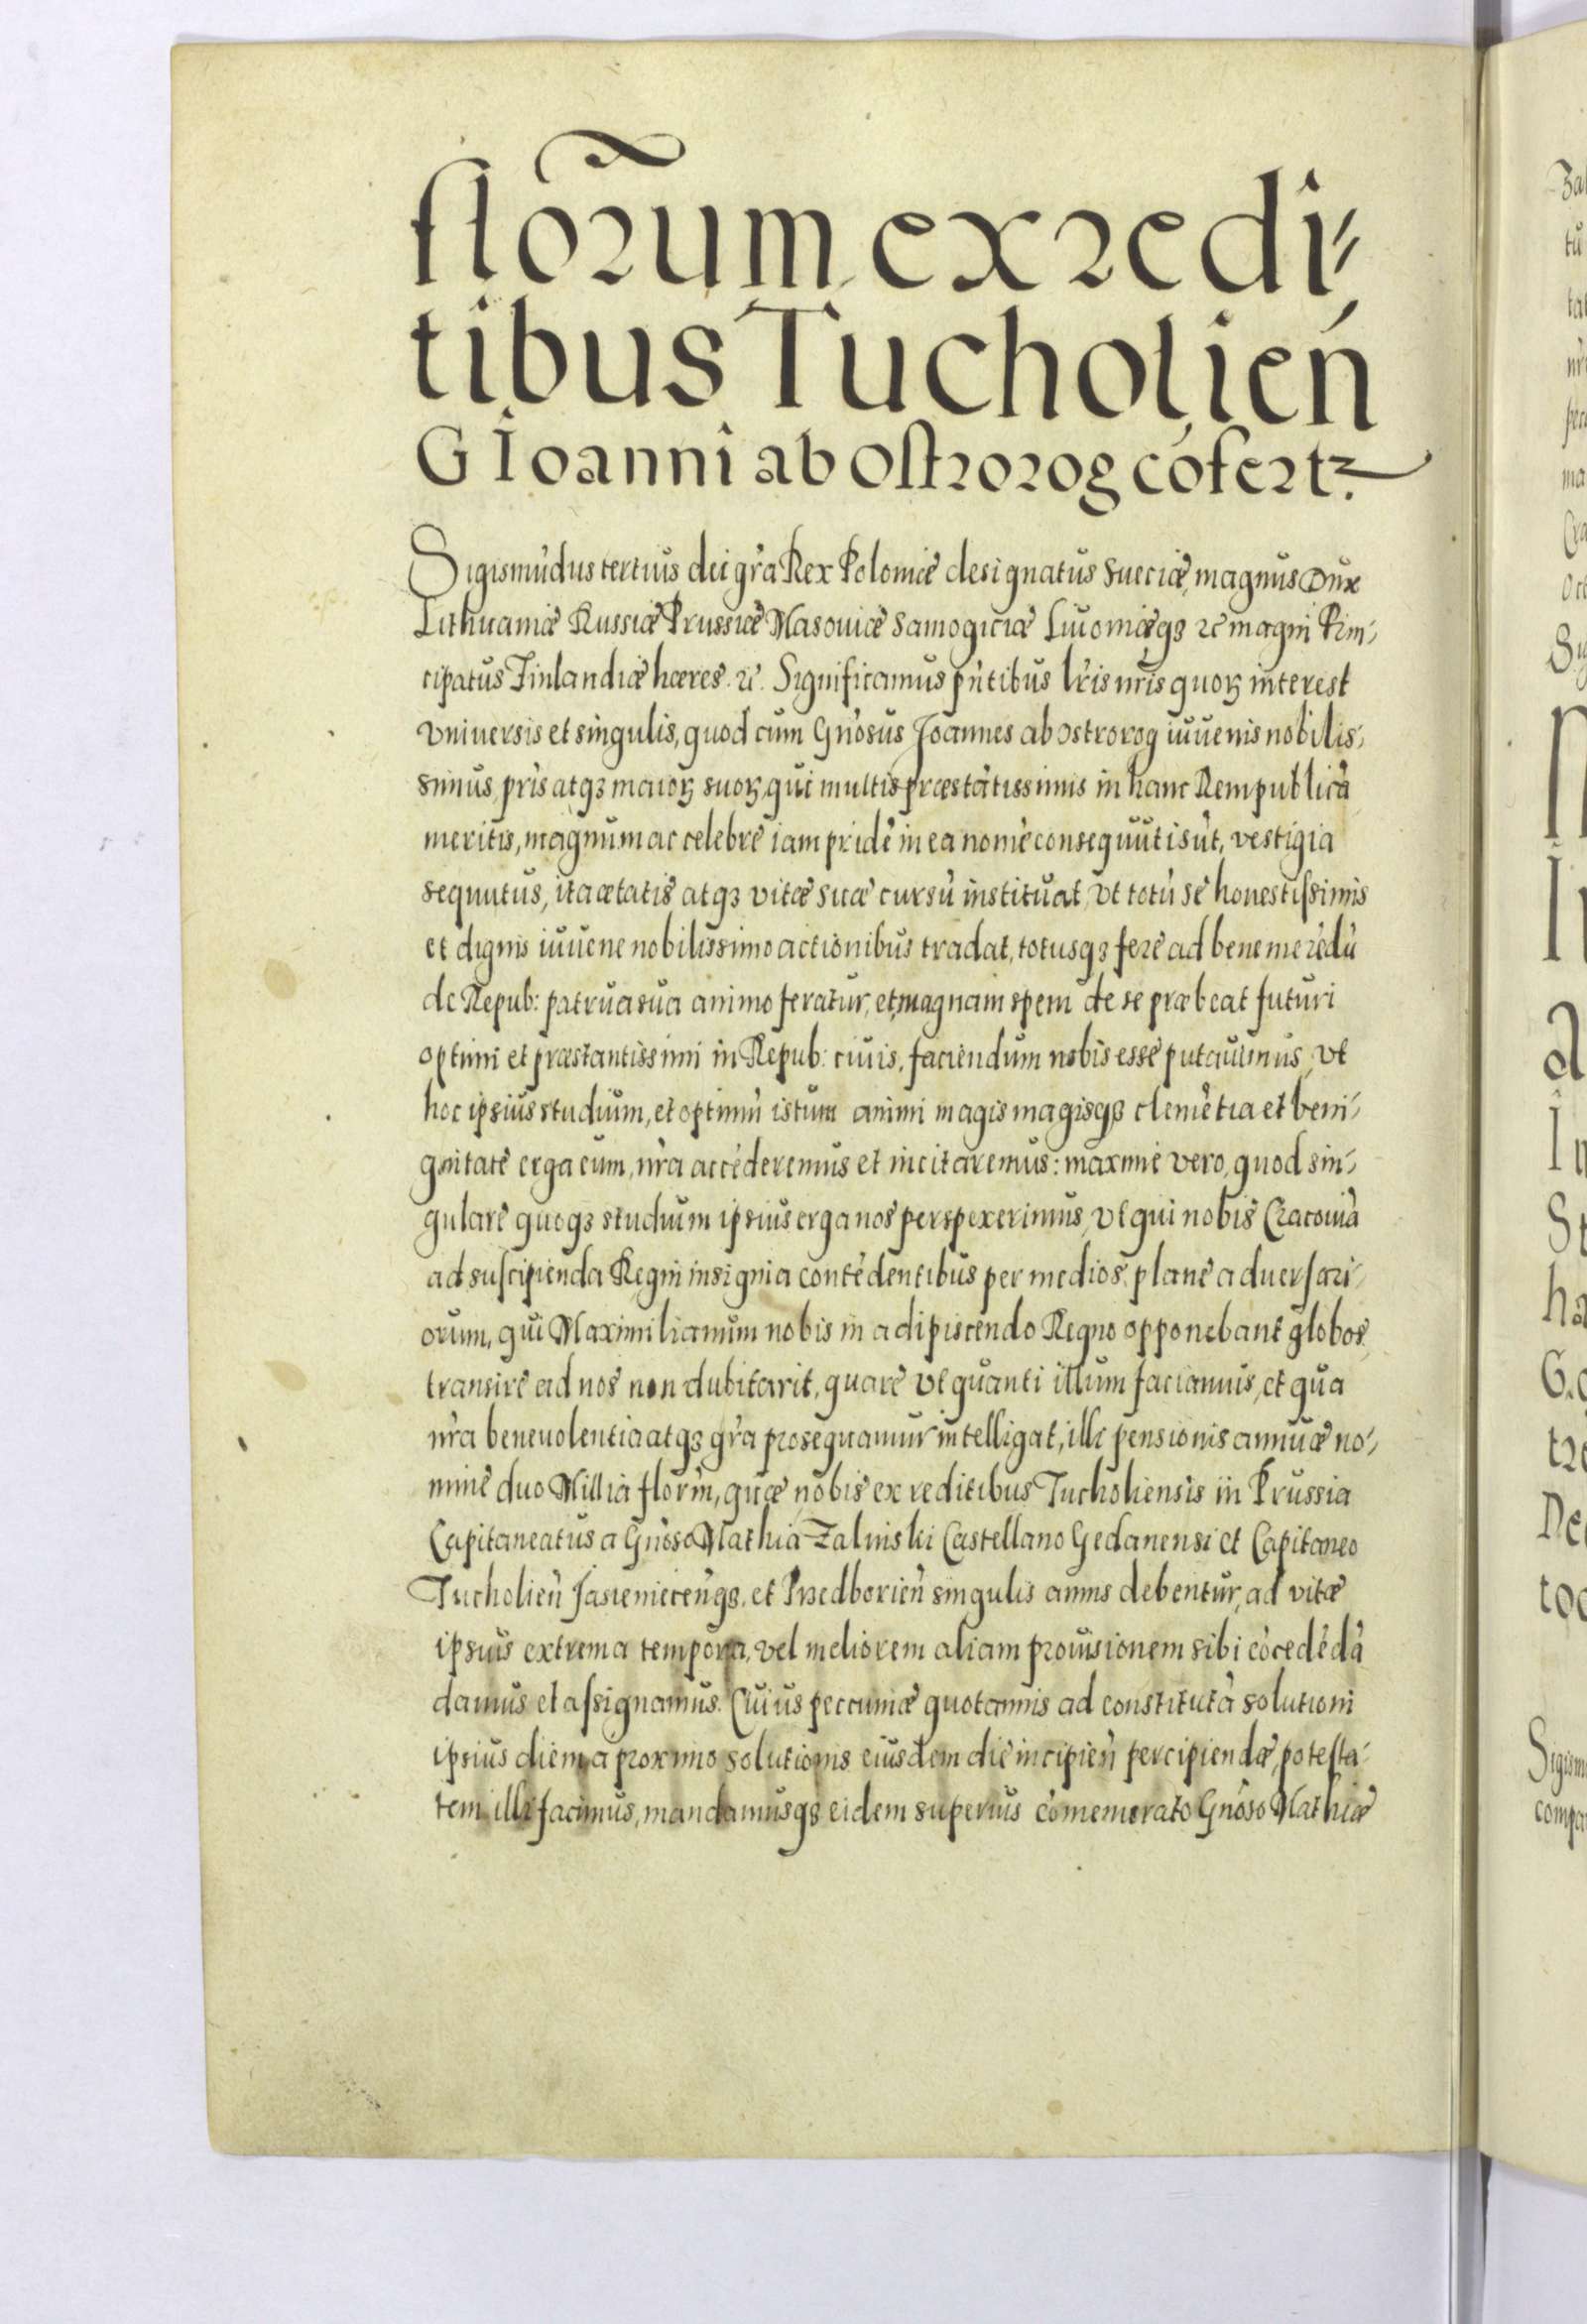 flõrum ex redi-
tibus Tucholień
G Ioanni ab Ostrorog cófert.
Sigismũdus tertius dei grã Rex Poloniæ designatus Sueciæ, magnus Dux
Lithuaniæ Russiæ Prussiæ Masouiæ Samogiciæ Liuoniæqȝ ꝛc magni Prin-
cipatus Finlandiæ hæres. ꝛc. Significamus pñtibus lr̃is nr̃is quoꝝ interest
vniuersis et singulis, quod cum Gñosus Joannes ab ostrorog iuuenis nobilis-
simus, pr̃is atqȝ maioꝝ suoꝝ, qui multis præstãtissimis in hanc Rempublicã
meritis, magnum ac celebre iam pridẽ in ea nomẽ consequuti sũt, vestigia
sequutus, ita ætatis atqȝ vitæ suæ cursũ instituat, vt totũ se honestissimis
et dignis iuuene nobilissimo actionibus tradat, totusqȝ fere ad bene merẽdũ
de Repub: patria sua animo feratur, et magnam spem de se præbeat futuri
optimi et præstantissimi in Repub: ciuis, faciendum nobis esse putauimus, vt
hoc ipsius studium, et optimũ istum animi magis magisqȝ clemẽtia et beni-
gnitate erga eum, nr̃a accẽderemus et incitaremus: maxime vero, quod sin-
gulare quoqȝ studium ipsius erga nos perspexerimus, vt qui nobis Cracouiã
ad suscipienda Regni insignia contẽdentibus per medios, plane aduersari-
orum, qui Maximilianum nobis in adipiscendo Regno opponebant globos,
transire ad nos non dubitarit, quare vt quanti illum faciamus, et qua
nr̃a beneuolentia atqȝ gr̃a prosequamur intelligat, illi pensionis annuæ no-
mine duo Millia florm̃, quæ nobis ex reditibus Tucholiensis in Prussia
Capitaneatus a Gñoso Mathia Zalinski Castellano Gedanensi et Capitaneo
Tucholieñ Jasienieceñqȝ, et Przedborieñ singulis annis debentur, ad vitæ
ipsius extrema tempora, vel meliorem aliam prouisionem sibi cõcedẽdã
damus et assignamus. Cuius pecuniæ quotannis ad constitutã solutioni
ipsius diem a proximo solutionis eiusdem die incipieñ percipiendæ, potesta-
tem illi facimus, mandamusqȝ eidem superius cõmemorato Gñoso Mathiæ